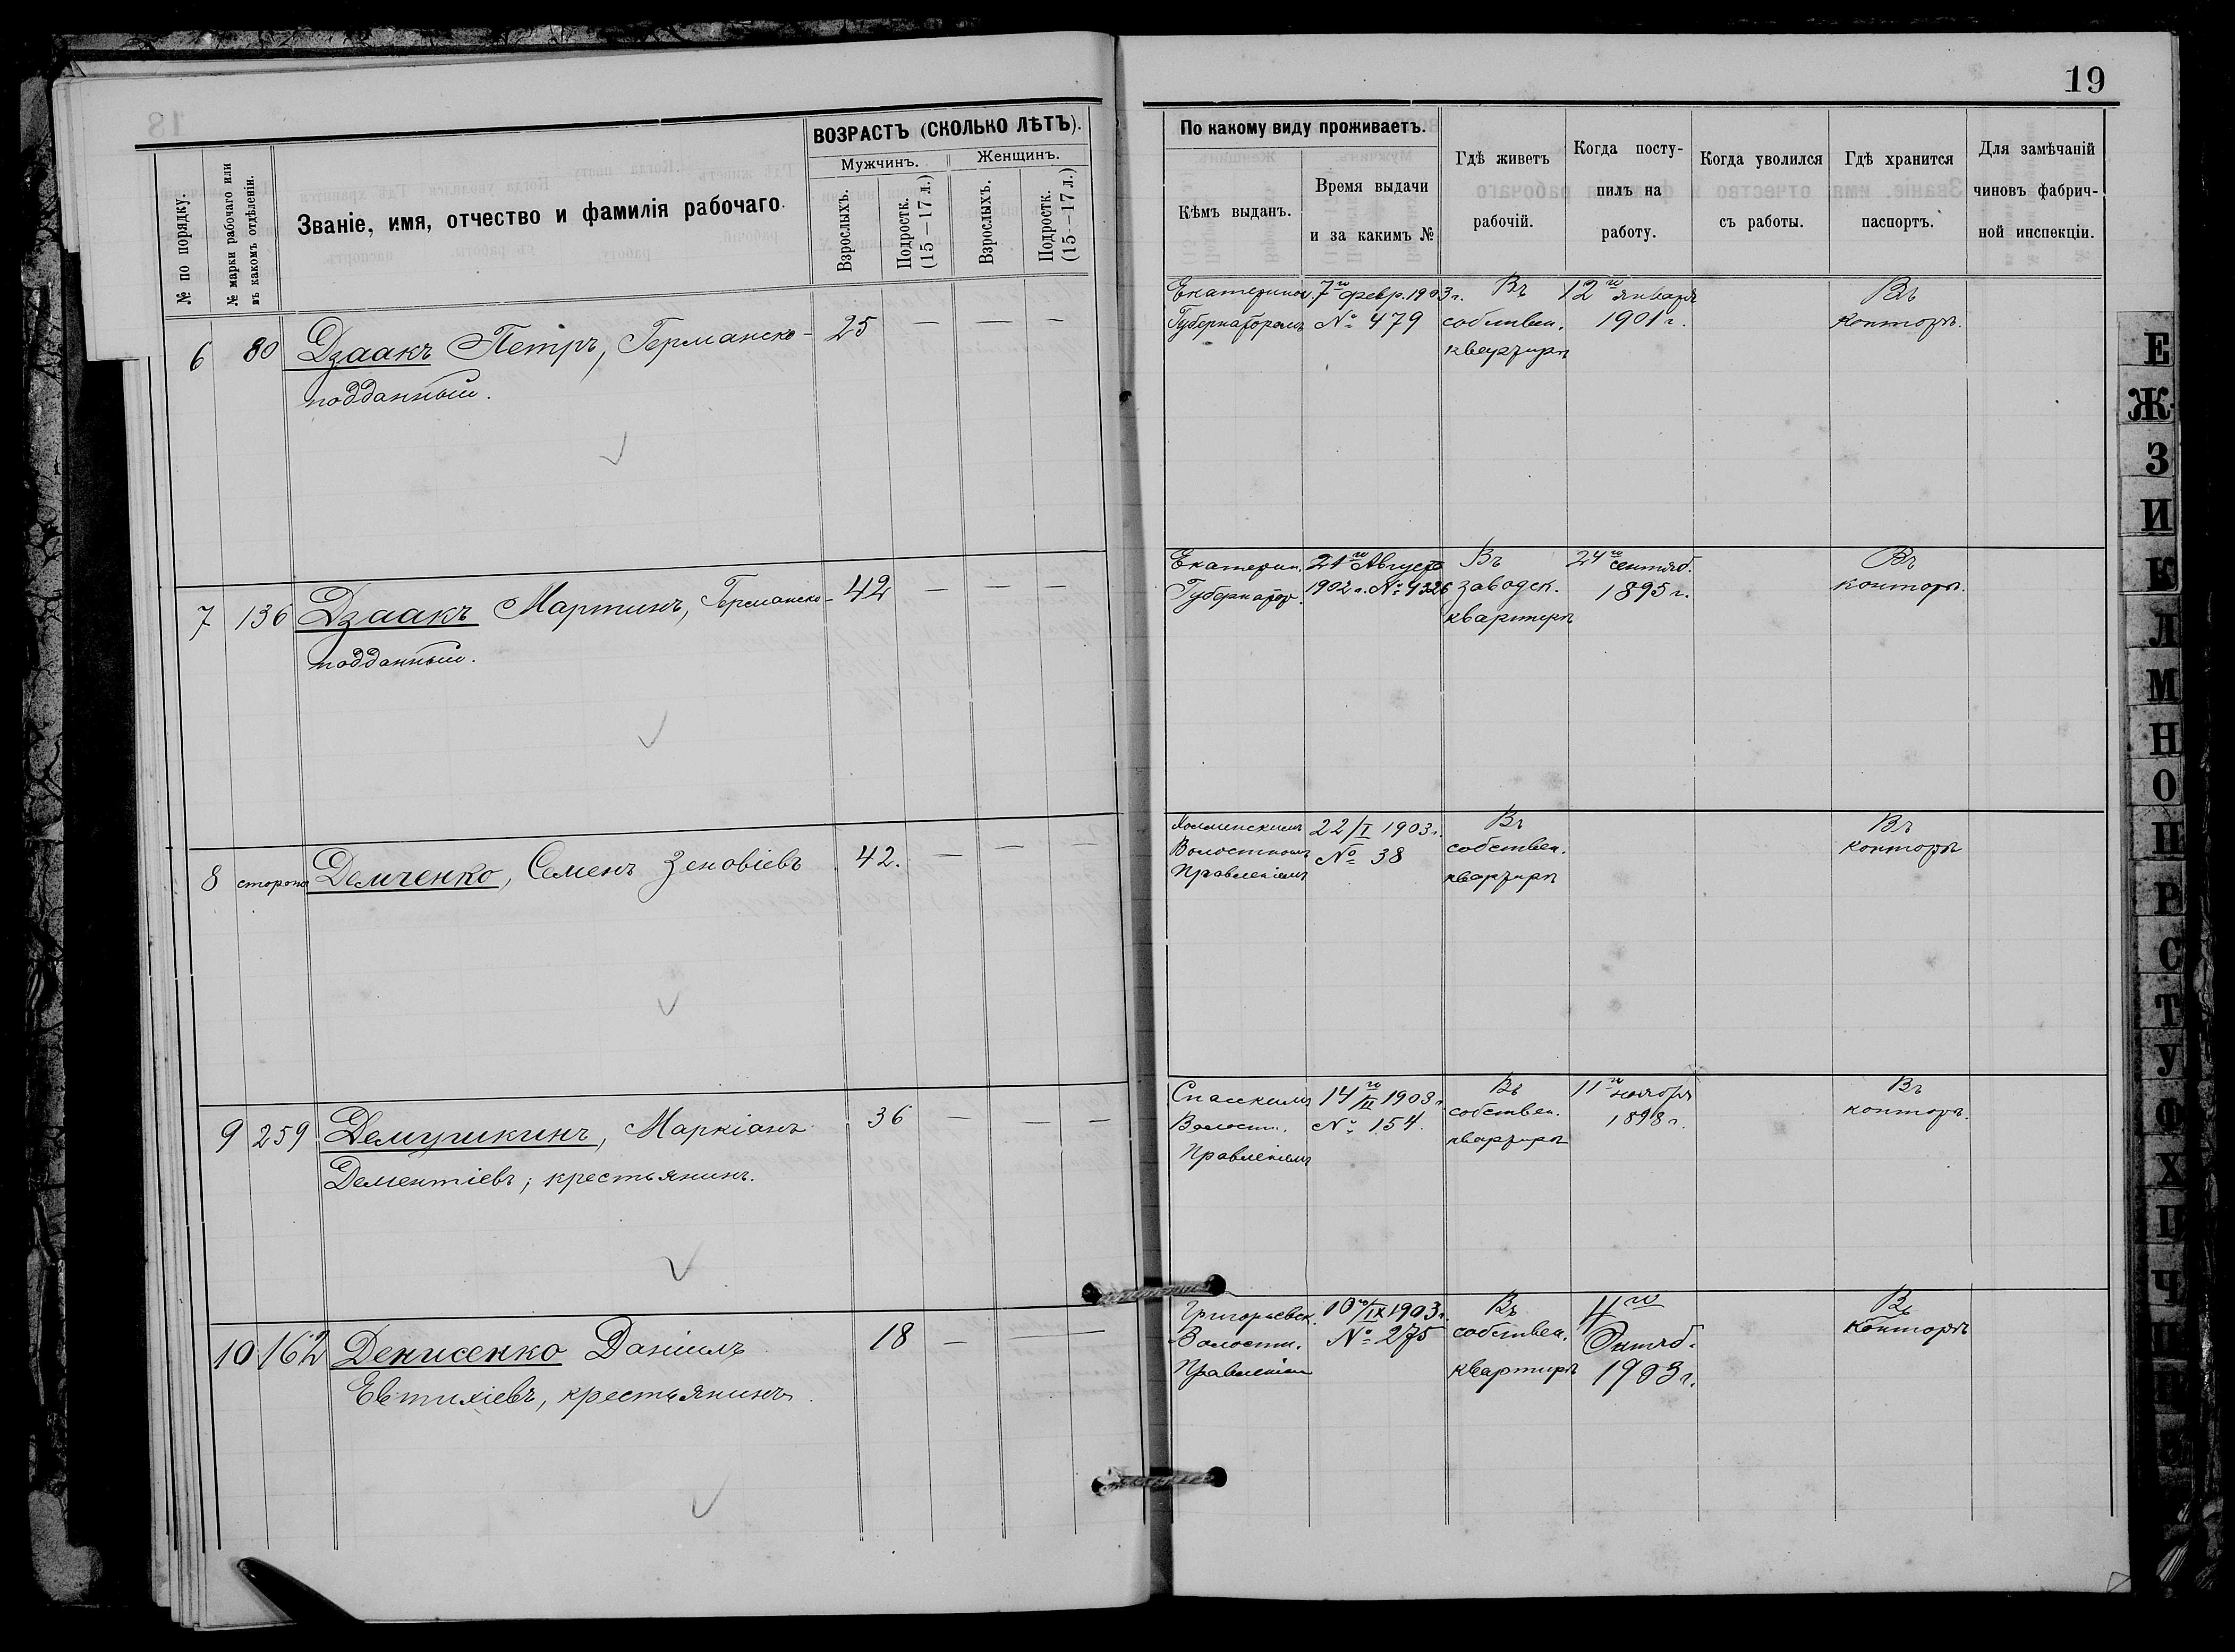 19
ВОЗРАСТЪ (СКОЛЬКО ЛѢТЪ).
Мужчинъ.
Женщинъ.
№ по порядку.
№ марки рабочаго или
въ какомъ отдѣленіи.
Званіе, имя, отчество и фамилія рабочаго.
Взрослыхъ.
Подростк.
(15—17 л.)
Взрослыхъ.
Подростк.
(15—17 л.)
По какому виду проживаетъ.
Кѣмъ выданъ.
Время выдачи
и за какимъ №
Гдѣ живетъ
рабочій.
Когда посту-
пилъ на
работу.
Когда уволился
съ работы.
Гдѣ хранится
паспортъ.
Для замѣчаній
чиновъ фабрич-
ной инспекціи.
6 80 Дзаакъ Петръ, Германско- 25 — — —
подданный.
Екатеринос. 7го февр. 1903 г. Въ 12го января Въ
Губернаторомъ № 479 собствен. 1901 г. конторѣ.
квартирѣ
7 136 Дзаакъ Мартинъ, Германско- 42 — — —
подданный.
Екатерин. 21го Августа Въ 24го сентяб. Въ
Губернатор. 1902 г. № 4326 заводск. 1895 г. конторѣ.
квартирѣ
8 сторожъ Демченко, Семенъ Зеновіевъ 42. — — —
22/I 1903 г. Въ Въ
Волостнымъ № 38 собствен. конторѣ
Правленіемъ квартирѣ
9 259 Демушкинъ, Маркіанъ 36 — — —
Дементіевъ, крестьянинъ.
Спасскимъ 14го/II 1903 г. Въ 11го ноября Въ
Волостн. № 154. собствен. 1898 г. конторѣ.
Правленіемъ квартирѣ
10 162 Денисенко Даніилъ 18 — — —
Евтихіевъ, крестьянинъ.
Григорьевск. 10го/IX 1903 г. Въ 4го Въ
Волостн. № 275 собствен. Октяб. конторѣ
Правленіем квартирѣ 1903 г.
Е
Ж
З
И
К
Л
М
Н
О
П
Р
С
Т
У
Ф
Х
Ц
Ч